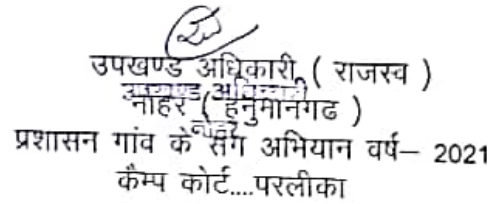 उपखण्ड अधिकारी ( राजस्व )
उपखण्ड अधिकारी
नोहर ( हनुमानगढ )
नोहर
प्रशासन गांव के संग अभियान वर्ष– 2021
कैम्प कोर्ट....परलीका